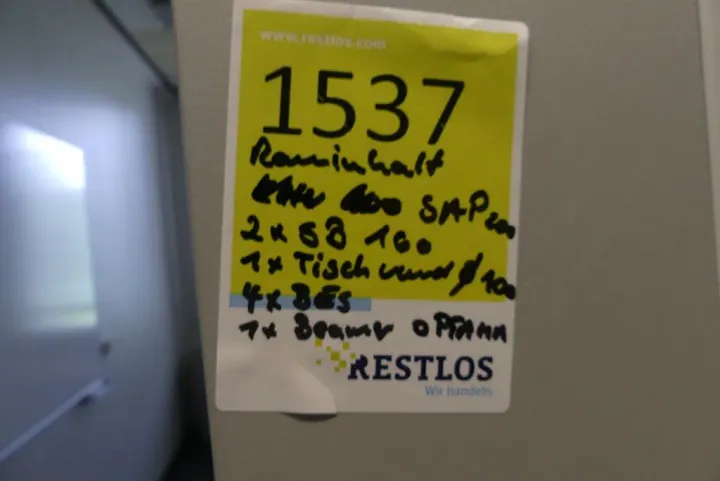 www.restlos.com
1537
Rauminhalt
SAP 200
2x SB 160
1x Tisch rund Ø 100
4x BES
1x Beamer OPTAMA
RESTLOS
Wir handeln.